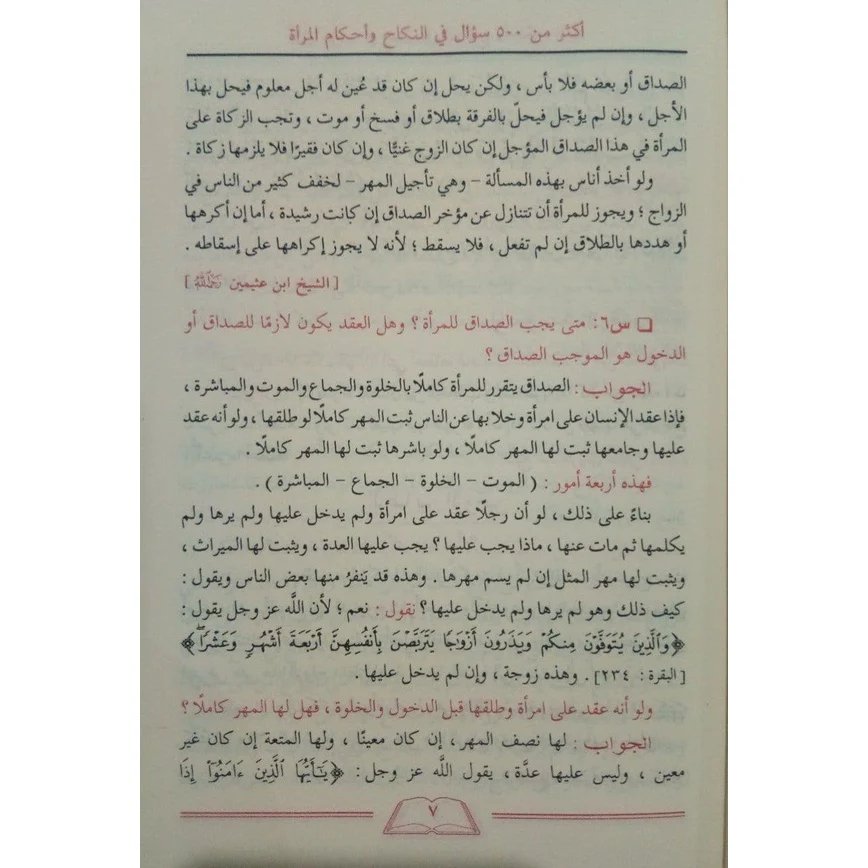 أكثر من ٥٠٠ سؤال في النكاح وأحكام المرأة
الصداق أو بعضه فلا بأس ، ولكن يحل إن كان قد عُين له أجل معلوم فيحل بهذا
الأجل ، وإن لم يؤجل فيحلّ بالفرقة بطلاق أو فسخ أو موت ، وتجب الزكاة على
المرأة في هذا الصداق المؤجل إن كان الزوج غنيًّا ، وإن كان فقيرًا فلا يلزمها زكاة .
ولو أخذ أناس بهذه المسألة – وهي تأجيل المهر – لخفف كثير من الناس في
الزواج ؛ ويجوز للمرأة أن تتنازل عن مؤخر الصداق إن كانت رشيدة ، أما إن أكرهها
أو هددها بالطلاق إن لم تفعل ، فلا يسقط ؛ لأنه لا يجوز إكراهها على إسقاطه .
[ الشيخ ابن عثيمين رَحِمَهُ اللَّهُ ]
❏ س٦: متى يجب الصداق للمرأة ؟ وهل العقد يكون لازمًا للصداق أو
الدخول هو الموجب الصداق ؟
الجواب : الصداق يتقرر للمرأة كاملًا بالخلوة والجماع والموت والمباشرة ،
فإذا عقد الإنسان على امرأة وخلا بها عن الناس ثبت المهر كاملًا لو طلقها ، ولو أنه عقد
عليها وجامعها ثبت لها المهر كاملًا ، ولو باشرها ثبت لها المهر كاملًا .
فهذه أربعة أمور : ( الموت – الخلوة – الجماع – المباشرة ) .
بناءً على ذلك ، لو أن رجلًا عقد على امرأة ولم يدخل عليها ولم يرها ولم
يكلمها ثم مات عنها ، ماذا يجب عليها ؟ يجب عليها العدة ، ويثبت لها الميراث ،
ويثبت لها مهر المثل إن لم يسم مهرها . وهذه قد يَنفرُ منها بعض الناس ويقول :
كيف ذلك وهو لم يرها ولم يدخل عليها ؟ نقول : نعم ؛ لأن اللَّه عز وجل يقول :
﴿وَٱلَّذِينَ يُتَوَفَّوْنَ مِنكُمْ وَيَذَرُونَ أَزْوَٰجًا يَتَرَبَّصْنَ بِأَنفُسِهِنَّ أَرْبَعَةَ أَشْهُرٍ وَعَشْرًاۖ﴾
[ البقرة : ٢٣٤] . وهذه زوجة ، وإن لم يدخل عليها .
ولو أنه عقد على امرأة وطلقها قبل الدخول والخلوة ، فهل لها المهر كاملًا ؟
الجواب : لها نصف المهر ، إن كان معينًا ، ولها المتعة إن كان غير
معين ، وليس عليها عدَّة ، يقول اللَّه عز وجل : ﴿يَٰٓأَيُّهَا ٱلَّذِينَ ءَامَنُوٓا۟ إِذَا
٧